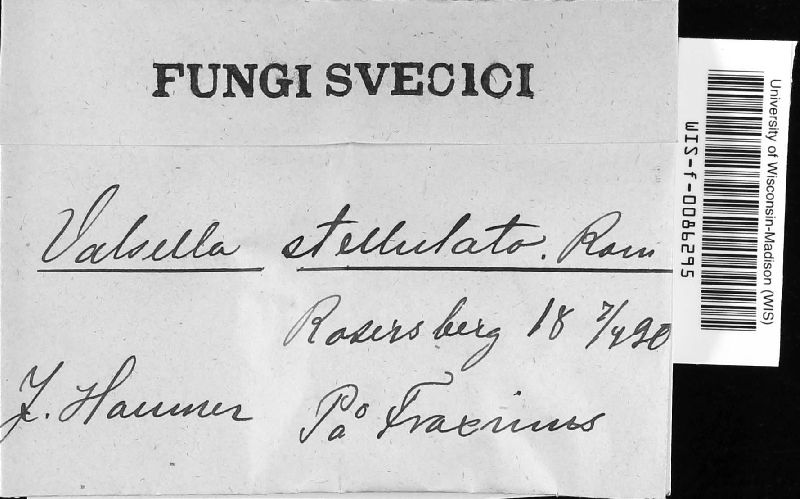 FUNGI SVECICI
Valsella stellulata. Rom
Rosersberg 18 7/4 90
J. Hammer
På Fraxinus
University of Wisconsin-Madison (WIS)
WIS-f-0086295